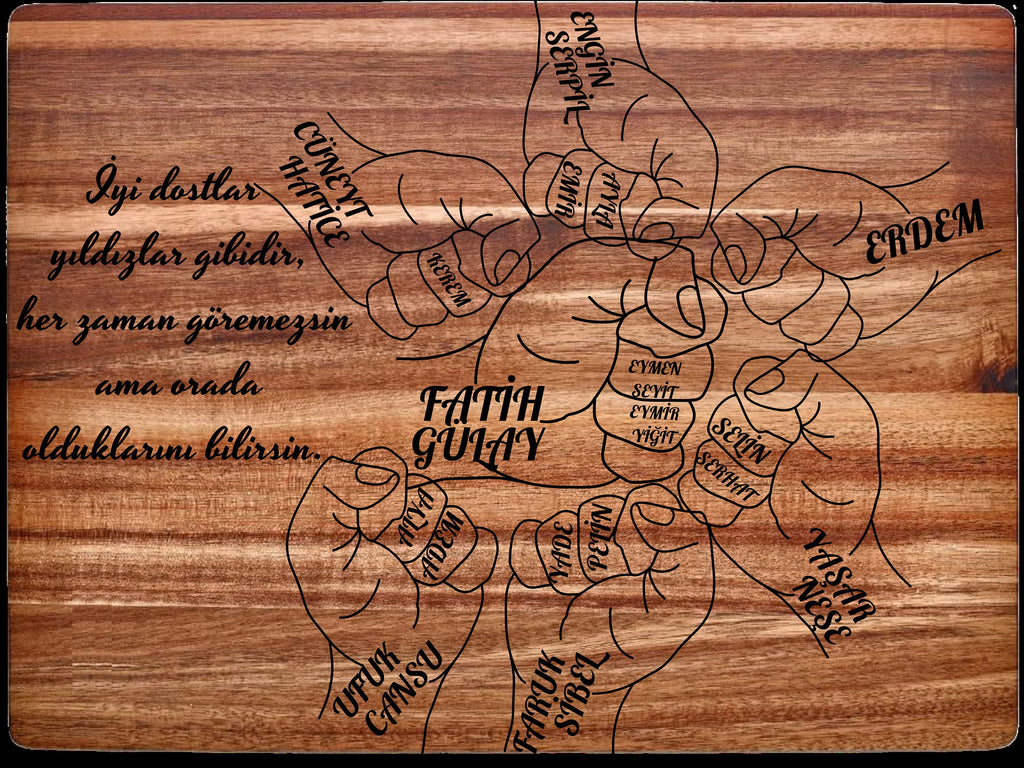 İyi dostlar
yıldızlar gibidir,
her zaman göremezsin
ama orada
olduklarını bilirsin.
ENGİN
SERPİL
EMİR
CÜNEYT
HATİCE
KEREM
ERDEM
FATİH
GÜLAY
EYMEN
SEYİT
EYMİR
YİĞİT
SELİN
SERHAT
YAŞAR
NEŞE
ALYA
ADEM
UFUK
CANSU
VADE
PELİN
FARUK
SİBEL